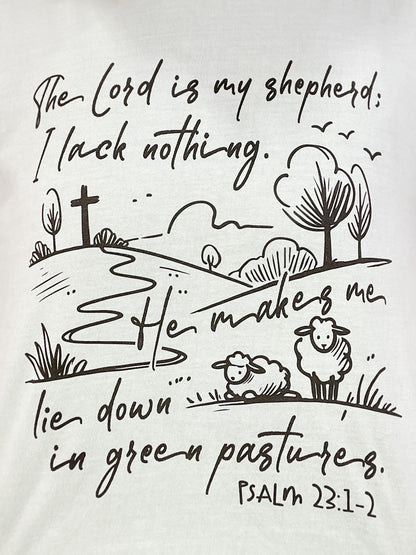 The Lord is my shepherd;
I lack nothing.
He makes me
lie down
in green pastures.
PSALM 23:1-2